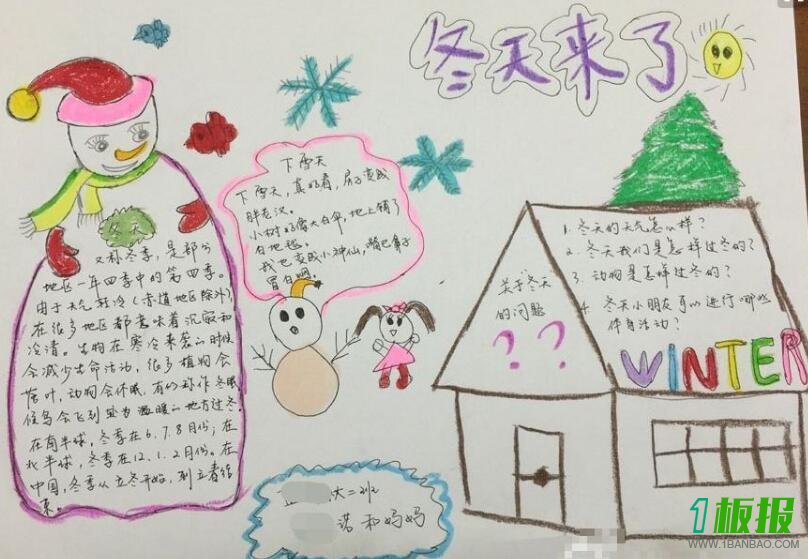 冬天来了
冬天
又称冬季，是部分
地区一年四季中的第四季。
由于天气较冷（赤道地区除外），
在很多地区都意味着沉寂和
冷清。生物在寒冷来袭的时候
会减少生命活动，很多植物会
落叶，动物会休眠，有的称作冬眠
候鸟会飞到较为温暖的地方过冬。
在南半球，冬季在6.7.8月份；在
北半球，冬季在12.1.2月份。在
中国，冬季从立冬开始，到立春结
束。
下雪天
下雪天，真好看，房子变成
胖老汉。
小树好像大白伞，地上铺了
白地毯。
我也变成小神仙，嘴巴鼻子
冒白烟。
关于冬天
的问题
？？
1.冬天的天气怎么样？
2.冬天我们是怎样过冬的？
3.动物是怎样过冬的？
4.冬天小朋友可以进行哪些
体育活动？
WINTER
大二班
诺和妈妈
1板报
WWW.1BANBAO.COM